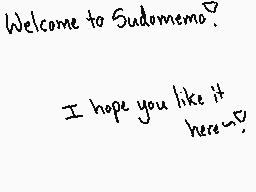 Welcome to Sudomemo♡!
I hope you like it
here~♡!